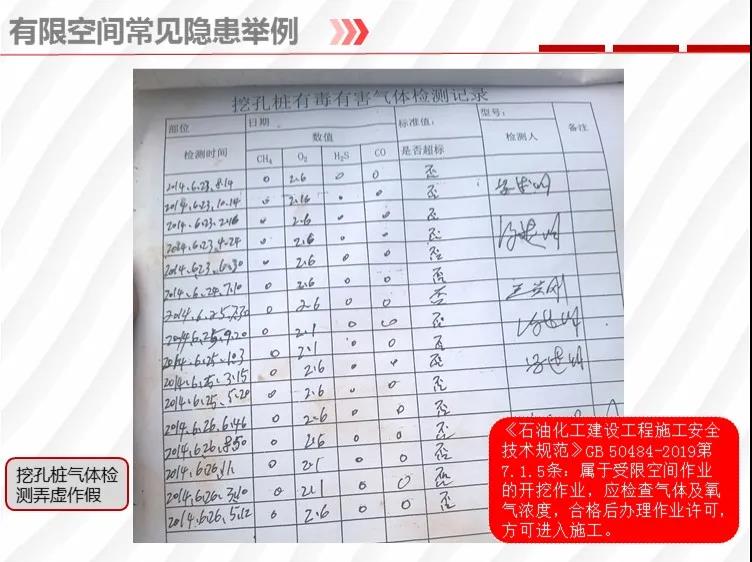 有限空间常见隐患举例
挖孔桩有毒有害气体检测记录
部位 日期 标准值: 型号:
检测时间 数值 是否超标 检测人 备注
CH₄ O₂ H₂S CO
2014.6.23.8.14 0 2.6 0 0 否
2014.6.23.10.14 0 2.16 0 0 否
2014.6.23.2.46 0 2.6 0 0 否
2014.6.23.4.24 0 2.6 0 0 否
2014.6.23.6.30 0 2.6 0 0 否
2014.6.24.7.10 0 2.6 0 0 否
2014.6.25.7.30 0 2.6 0 0 否
2014.6.25.9.20 0 2.1 0 0 否
2014.6.25.1.03 0 2.1 0 0 否
2014.6.25.3.15 0 2.6 0 0 否
2014.6.25.5.20 0 2.6 0 0 否
2014.6.26.6.46 0 2.6 0 0 否
2014.6.26.8.50 0 2.6 0 0 否
2014.6.26.11. 0 2.1 0 0 否
2014.6.26.3.10 0 2.1 0 0 否
2014.6.26.5.12 0 2.6 0 0 否
挖孔桩气体检
测弄虚作假
《石油化工建设工程施工安全
技术规范》GB 50484-2019第
7.1.5条：属于受限空间作业
的开挖作业，应检查气体及氧
气浓度，合格后办理作业许可，
方可进入施工。